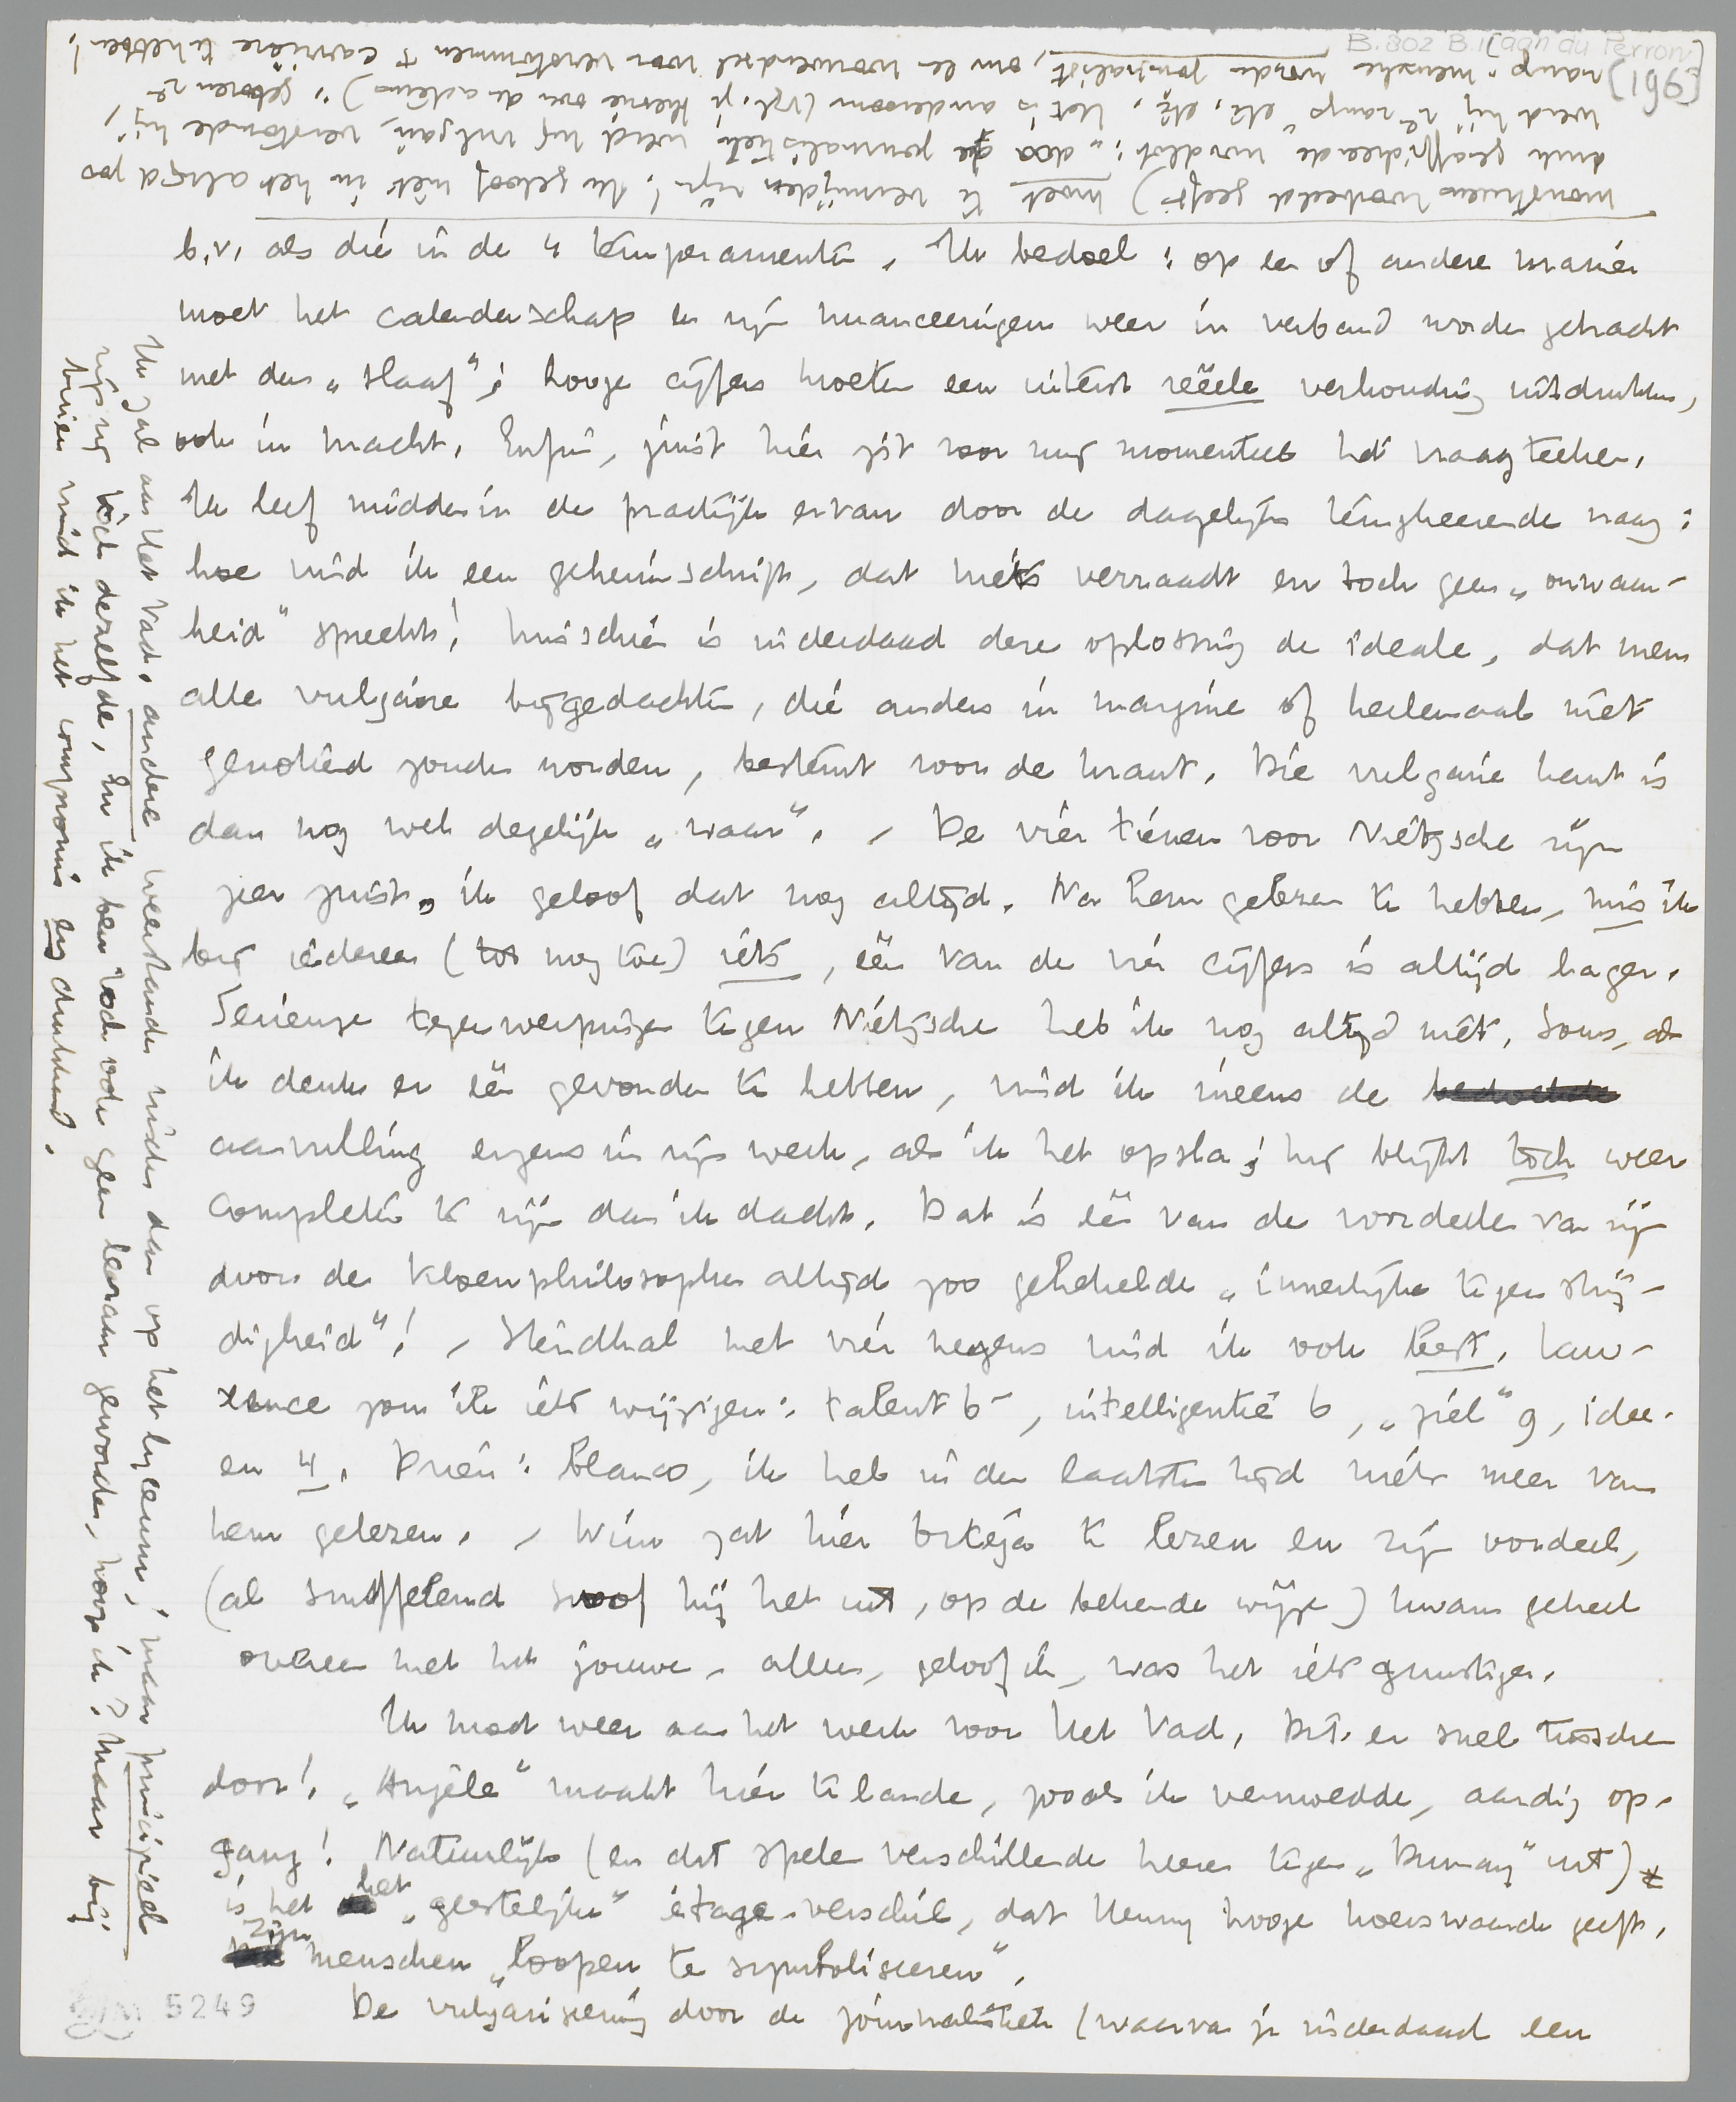 B 802 B.1 [aan du Perron]
[196]
b.v. als die in de 4 temperamenten. Ik bedoel: op een of andere manier
moet het calanderschap en zijn nuanceeringen weer in verband worden gebracht
met den „slaaf"; hooge cijfers moeten een uiterst reëele verhouding uitdrukken,
ook in macht. Enfin, juist hier zit voor mij momenteel het vraagteeken.
Ik leef midden in de practijk ervan door de dagelijks terugkeerende vraag:
hoe vind ik een geheimschrift, dat niets verraadt en toch geen „onwaar-
heid" spreekt! Misschien is inderdaad deze oplossing de ideale, dat men
alle vulgaire bijgedachten, die anders in margine of heelemaal niet
genoteerd zouden worden, bestemt voor de krant. Die vulgaire kant is
dan nog wel degelijk „waar". – De vier tienen voor Nietzsche zijn
zeer juist, ik geloof dat nog altijd. Na hem gelezen te hebben, mis ik
bij iedereen (tot nog toe) iets, één van de vier cijfers is altijd lager.
Serieuze tegenwerpingen tegen Nietzsche heb ik nog altijd niet. Soms, als
ik denk er één gevonden te hebben, vind ik ineens de
aanvulling ergens in zijn werk, als ik het opsla; hij blijkt toch weer
completer te zijn dan ik dacht. Dat is één van de voordeelen van zijn
door de kloenphilosophen altijd zoo gehekelde „innerlijke tegenstrij-
digheid"! – Stendhal met vier negens vind ik ook best. Law-
rence zou ik iets wijzigen: talent 6-, intelligentie 6, „ziel" 9, idee-
en 4. Prien: blanco, ik heb in den laatsten tijd niets meer van
hem gelezen. – Wim zat hier Ortega te lezen en zijn oordeel,
(al snuffelend snoof hij het uit, op de bekende wijze) kwam geheel
overeen met het jouwe, alleen, geloof ik, was het iets gunstiger.
Ik moet weer aan het werk voor Het Vad. Dit er snel tusschen
door! „Angèle" maakt hier te lande, zooals ik vermoedde, aardig op-
gang! Natuurlijk (en dat spelen verschillende heeren tegen „Dumay" uit)
is het het „geestelijke" étage-verschil, dat Henny hooge koerswaarde geeft.
Zijn menschen „loopen te symboliseeren".
De vulgariseering door de journalistiek (waarvan je inderdaad een
monstrueus voorbeeld geeft) moet te vermijden zijn! Ik geloof niet in het altijd zoo
druk geaffirmeerde noodlot: „door de journalistiek werd hij vulgair, verstomde hij,
werd hij 2e rangs" etc. etc. Het is andersom (vgl. je theorie over de acteurs); geboren 2e
rangs-menschen worden journalist, om een voorwendsel voor verstommen + carrière te hebben!
Ik zal aan Het Vad. andere weerstanden vinden dan op het lyceum; maar principieel
zijn zij toch dezelfde. En ik ben toch ook geen leeraar geworden, hoop ik? Maar bij
buien vind ik het compromis erg drukkend.
5249